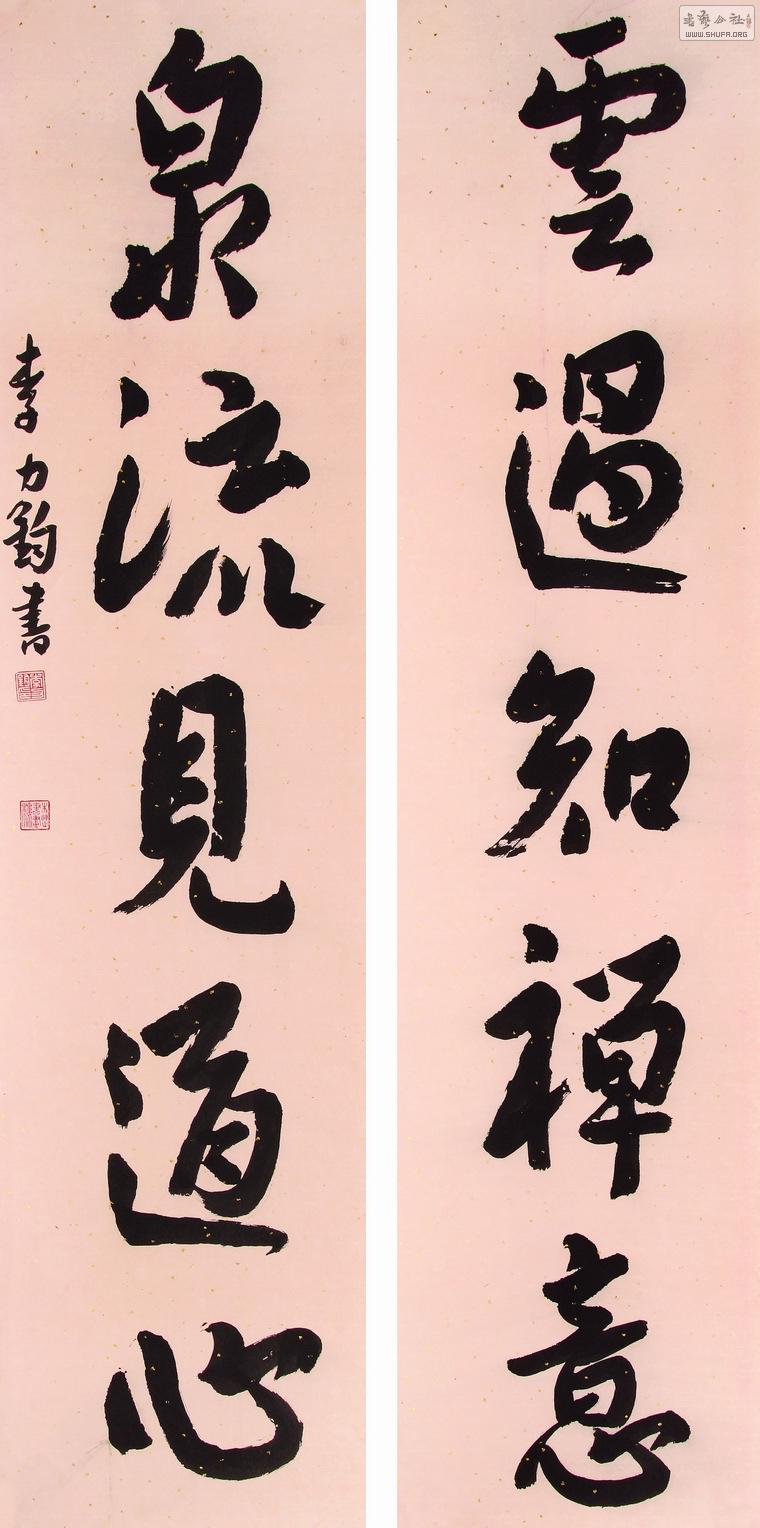 雲過知禪意
泉流見道心
李力鈞書
書藝公社
WWW.SHUFA.ORG